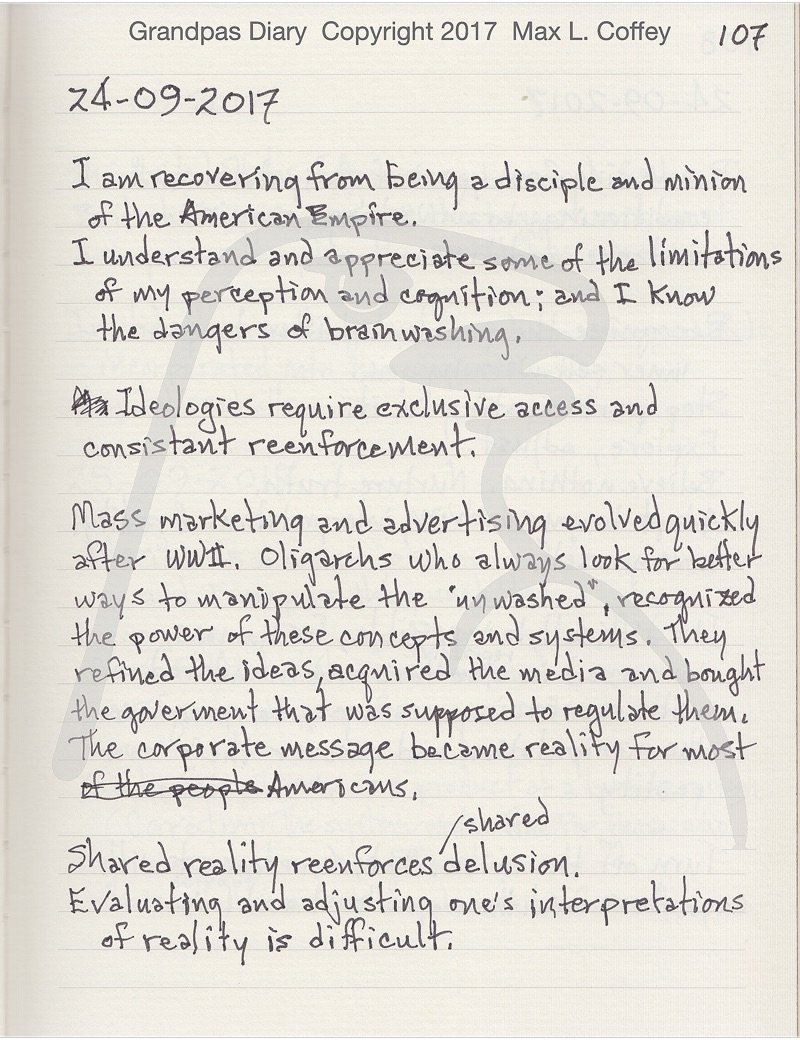 Grandpas Diary Copyright 2017 Max L. Coffey 107
24-09-2017
I am recovering from being a disciple and minion
of the American Empire.
I understand and appreciate some of the limitations
of my perception and cognition; and I know
the dangers of brainwashing.
Ideologies require exclusive access and
consistant reenforcement.
Mass marketing and advertising evolved quickly
after WWII. Oligarchs who always look for better
ways to manipulate the "unwashed", recognized
the power of these concepts and systems. They
refined the ideas, acquired the media and bought
the goverment that was supposed to regulate them.
The corporate message became reality for most
of the people Americans.
shared
Shared reality reenforces delusion.
Evaluating and adjusting one's interpretations
of reality is difficult.